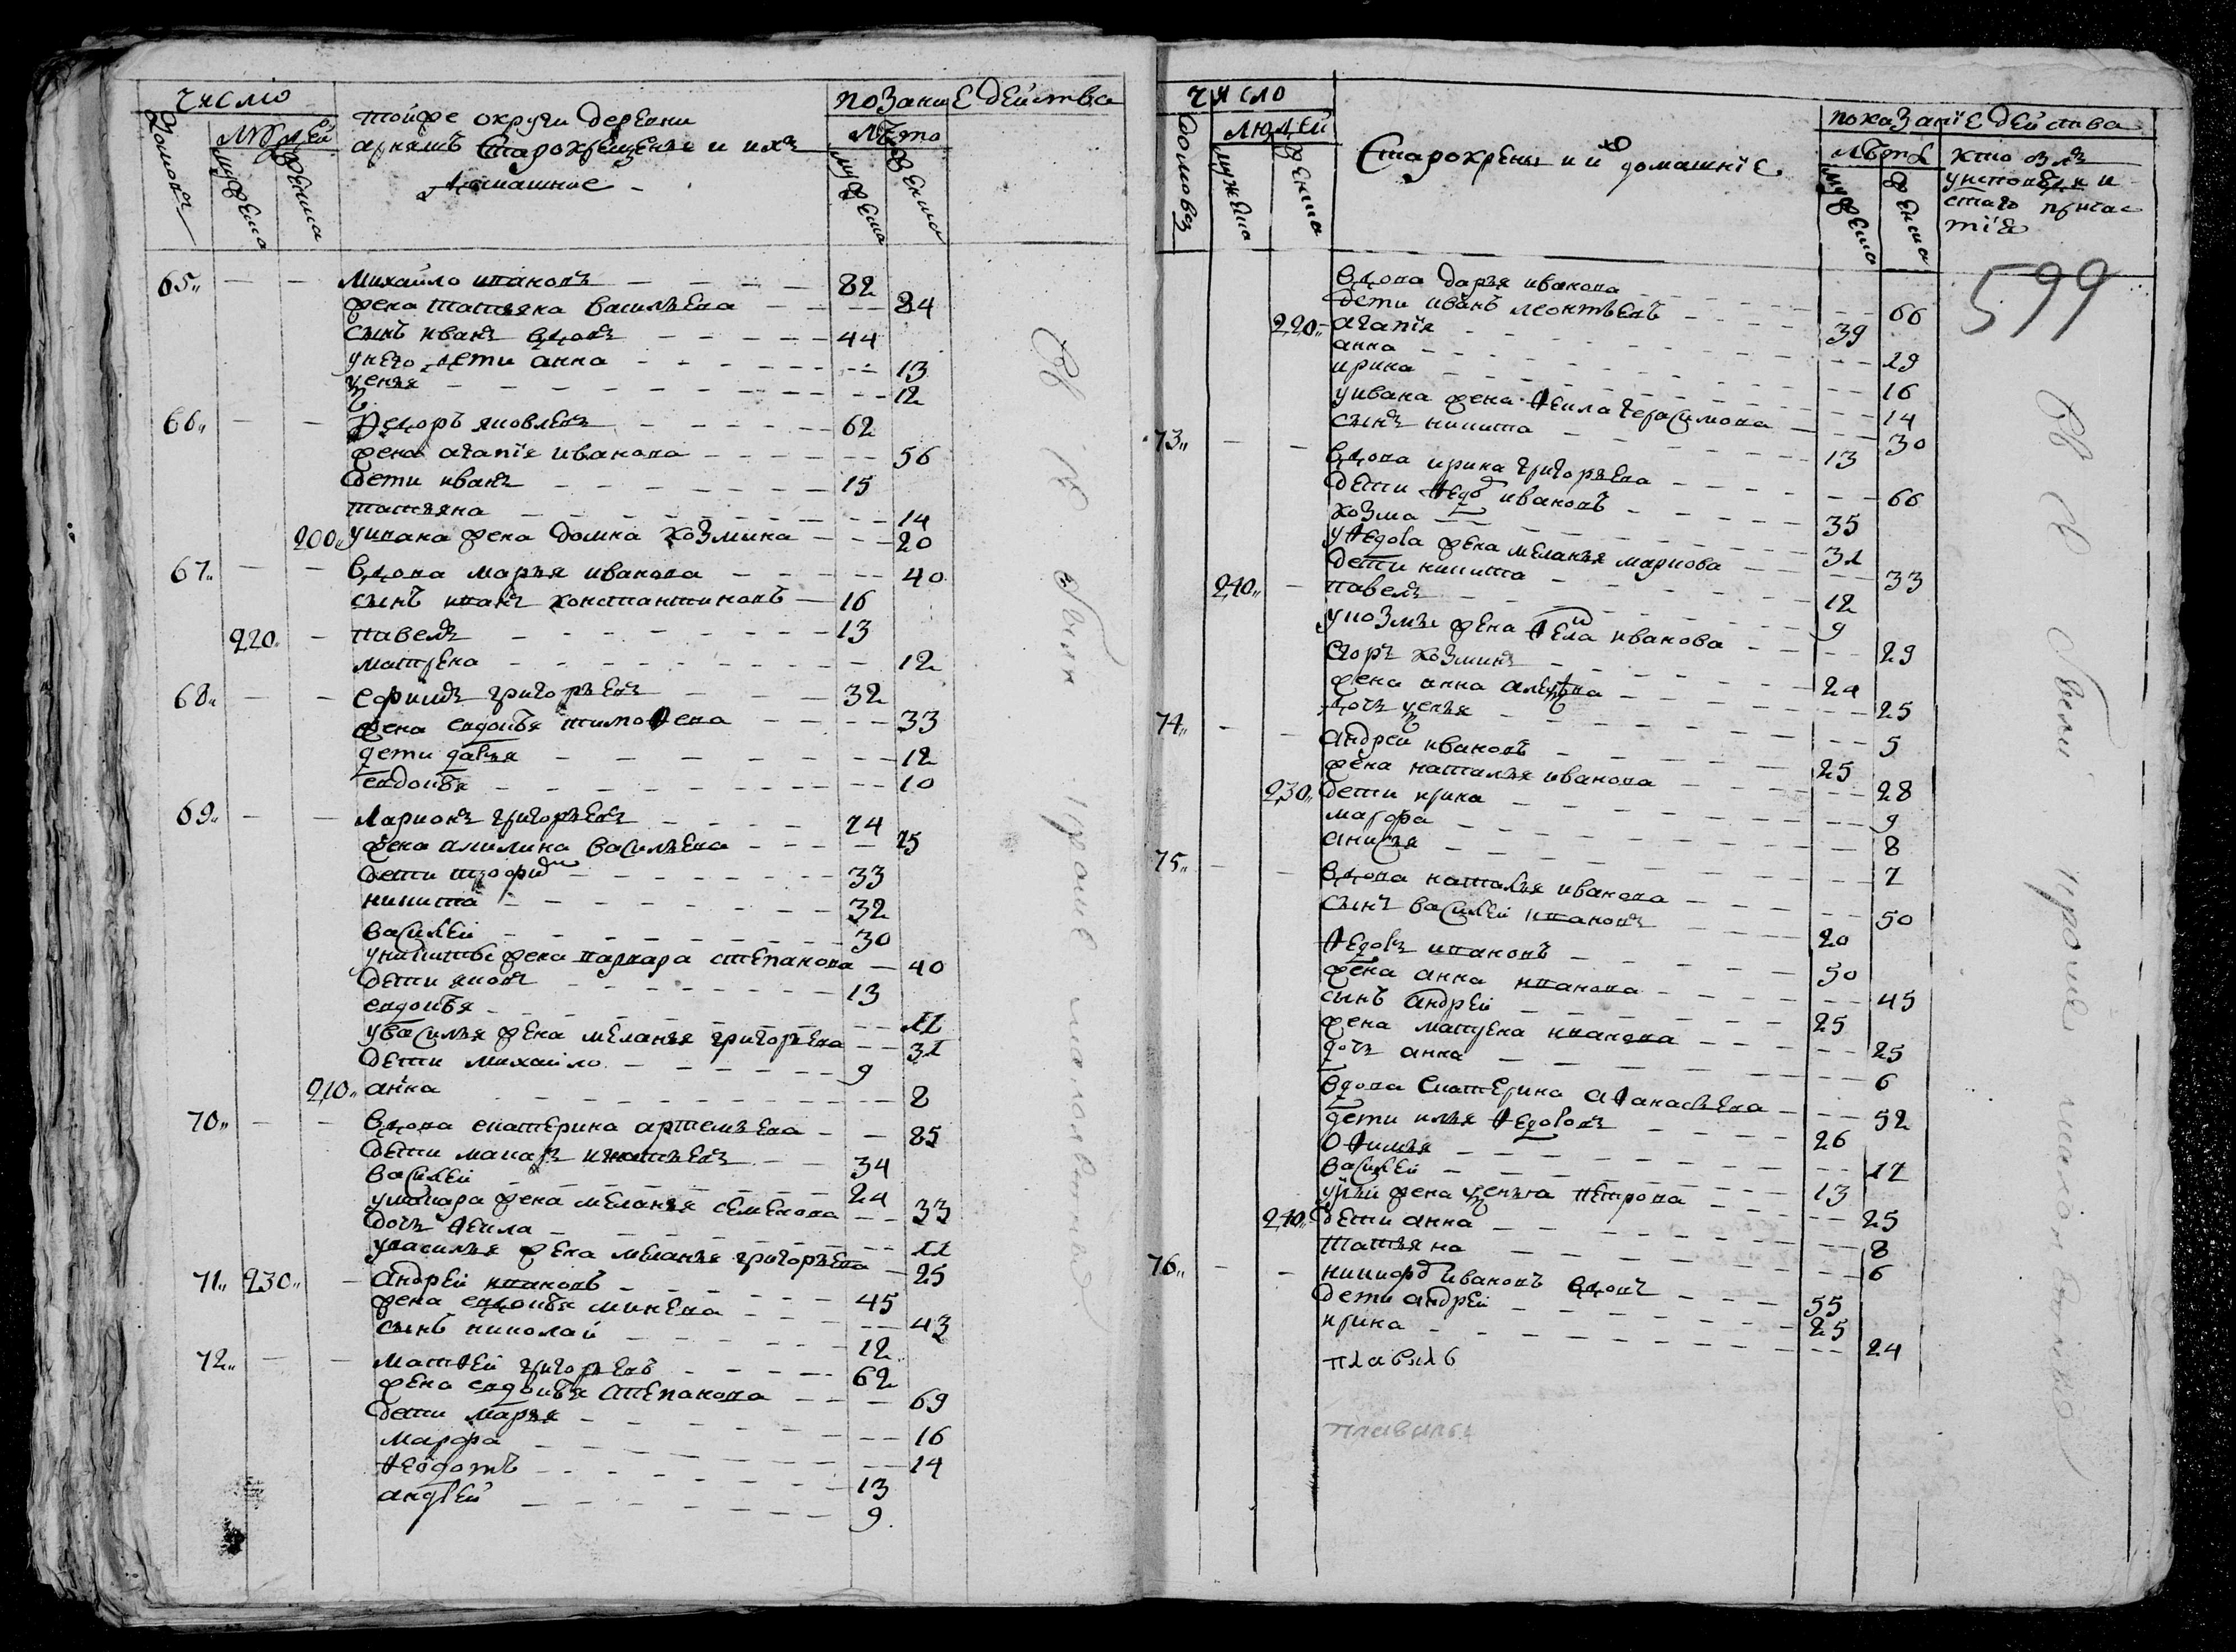 число
домовъ
людей
мужеска
женска
тойже округи деревни
арняшъ Старокрещены и ихъ
домашние
показание действа
лета
мужеска
женска
65 михайло ивановъ 82
жена татьяна васильева 84
сынъ иванъ вдовъ 44
унего дети анна 13
ксенья 12
66 Федоръ яковлевъ 62
жена агапія иванова 56
дети иванъ 15
татьяна 14
200 уивана жена домна козмина 20
67 вдова марья иванова 40
сынъ иванъ константиновъ 16
220 павелъ 13
матрена 12
68 ефимъ григорьевъ 32
жена евдокѣя тимоѳеева 33
дети дарья 12
евдокѣя 10
69 Ларионъ григорьевъ 74
жена акилина васильева 75
дети трофи 33
никита 32
василей 30
уникиты жена варвара степанова 40
дети яковъ 13
евдокѣя 11
увасилья жена меланья григорьева 31
дети михайло 9
210 анна 8
70 вдова екатерина артемьева 85
дети макаръ игнатьевъ 34
василей 24
умакара жена меланья семенова 33
дочь ѳекла 11
увасилья жена меланья григорьева 25
71 230 андрей ивановъ 45
жена евдокѣя минеева 43
сынъ николай 12
72 матѳей григорьевъ 62
жена евдокѣя степанова 69
дети марья 16
марфа 14
ѳедотъ 13
андрей 9
число
домовъ
людей
мужеска
женска
Старокрещены и ихъ домашніе
показаніе действа
лета
мужеска
женска
кто былъ
уисповеди и
стаго причас
тія
599
вдова дарья иванова 66
дети иванъ леонтьевъ 39
220 агапія 19
анна 16
ирина 14
уивана жена ѳекла герасимова 30
сынъ никита 13
73 вдова ирина григорьева 66
дети ѳедо ивановъ 35
козма 31
уѳедора жена меланья маркова 33
дети никита 12
240 павелъ 9
укозмы жена ѳекла иванова 29
егоръ козминъ 24
жена анна алеѯѣева 25
дочь ксенья 5
74 андрей ивановъ 25
жена наталья иванова 28
230 дети ирина 9
марфа 8
анисья 7
75 вдова наталья иванова 50
сынъ василей ивановъ 20
ѳедоръ ивановъ 50
жена анна иванова 45
сынъ андрей 25
жена матрена иванова 25
дочь анна 6
вдова екатерина аѳанасьева 52
дети илья ѳедоровъ 26
оѳимья 17
василей 13
уильи жена ксенья петрова 25
240 дети анна 8
татьяна 6
76 никифо ивановъ вдовъ 55
дети андрей 25
ирина 24